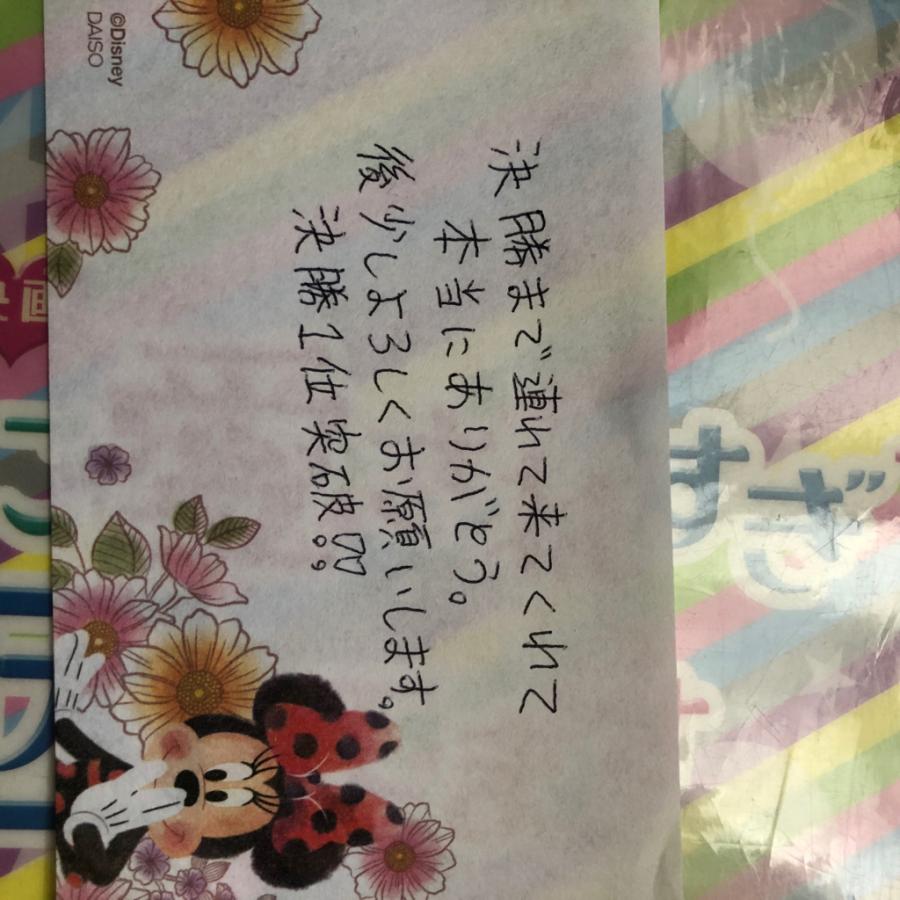 決勝まで連れて来てくれて
本当にありがとう。
後少しよろしくお願いします。
決勝1位突破!!
©Disney
DAISO